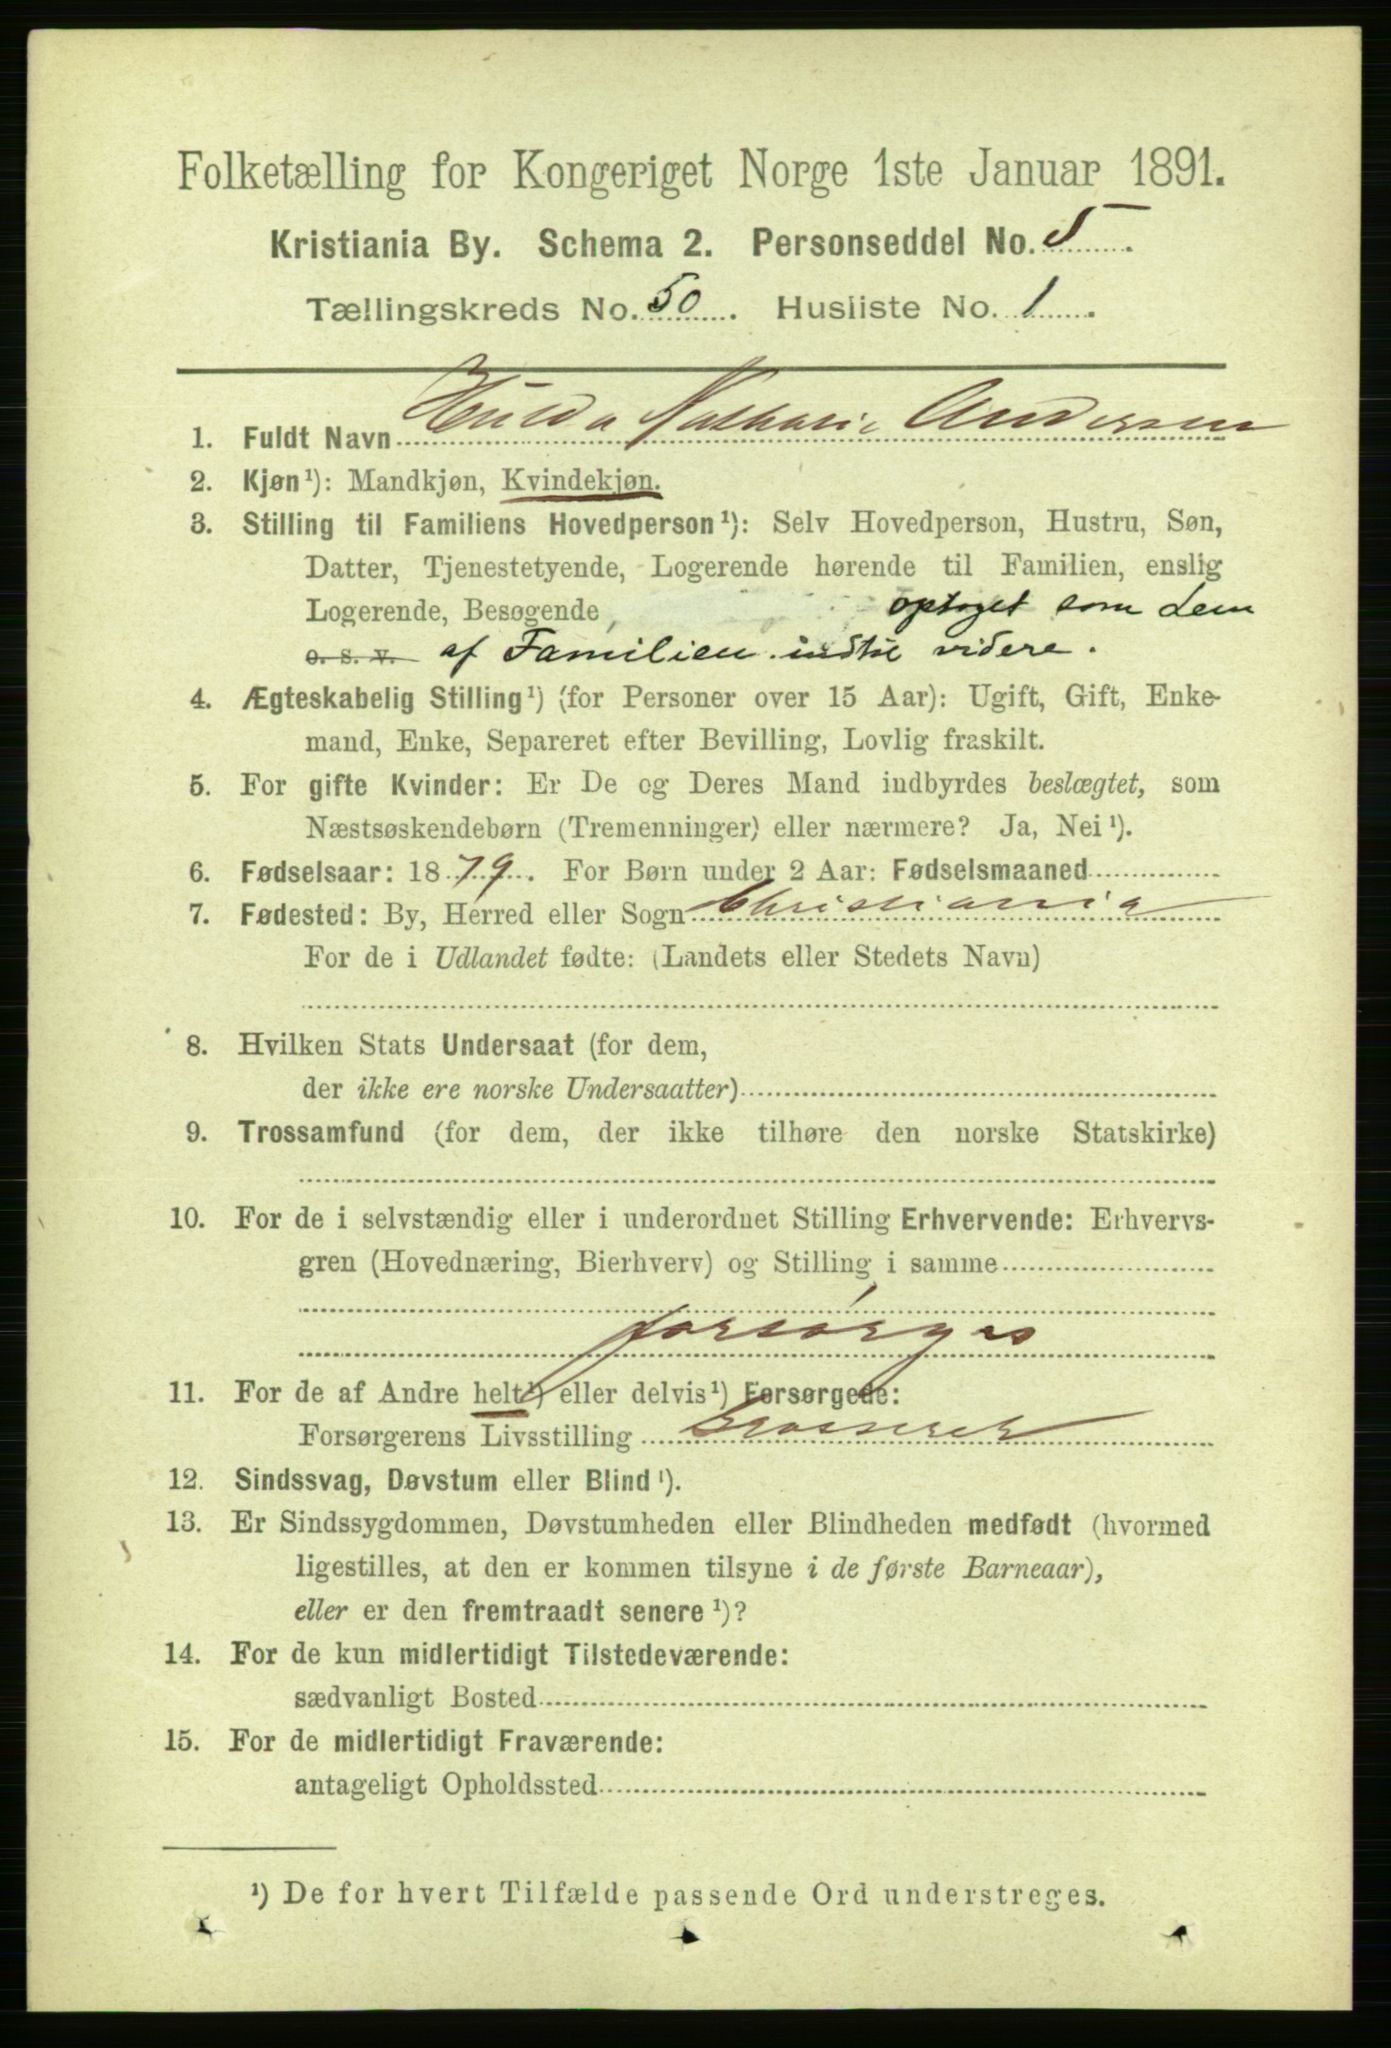 Folketælling for Kongeriget Norge 1ste Januar 1891.
Kristiania By. Schema 2. Personseddel No. 5.
Tællingskreds No. 50. Husliste No. 1.
1. Fuldt Navn Hulda Nathalie Andersen
2. Kjøn¹): Mandkjøn, Kvindekjøn.
3. Stilling til Familiens Hovedperson¹): Selv Hovedperson, Hustru, Søn,
Datter, Tjenestetyende, Logerende hørende til Familien, enslig
Logerende, Besøgende, optaget som Lem
o. s. v. af Familien indtil videre.
4. Ægteskabelig Stilling¹) (for Personer over 15 Aar): Ugift, Gift, Enke-
mand, Enke, Separeret efter Bevilling, Lovlig fraskilt.
5. For gifte Kvinder: Er De og Deres Mand indbyrdes beslægtet, som
Næstsøskendebørn (Tremenninger) eller nærmere? Ja, Nei¹).
6. Fødselsaar: 1879. For Børn under 2 Aar: Fødselsmaaned
7. Fødested: By, Herred eller Sogn Christiania
For de i Udlandet fødte: (Landets eller Stedets Navn)
8. Hvilken Stats Undersaat (for dem,
der ikke ere norske Undersaatter)
9. Trossamfund (for dem, der ikke tilhøre den norske Statskirke)
10. For de i selvstændig eller i underordnet Stilling Erhvervende: Erhvervs-
gren (Hovednæring, Bierhverv) og Stilling i samme
forsørges
11. For de af Andre helt¹) eller delvis¹) Forsørgede:
Forsørgerens Livsstilling Grosserer
12. Sindssvag, Døvstum eller Blind¹).
13. Er Sindssygdommen, Døvstumheden eller Blindheden medfødt (hvormed
ligestilles, at den er kommen tilsyne i de første Barneaar),
eller er den fremtraadt senere¹)?
14. For de kun midlertidigt Tilstedeværende:
sædvanligt Bosted
15. For de midlertidigt Fraværende:
antageligt Opholdssted
¹) De for hvert Tilfælde passende Ord understreges.